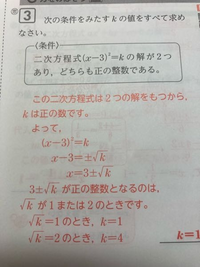 3 次の条件をみたすkの値をすべて求め
なさい。
(条件)
二次方程式(x−3)²=kの解が2つ
あり、どちらも正の整数である。
この二次方程式は2つの解をもつから、
kは正の数です。
よって、
(x−3)²=k
x−3=±√k
x=3±√k
3±√kが正の整数となるのは、
√kが1または2のときです。
√k=1のとき, k=1
√k=2のとき, k=4
k=1